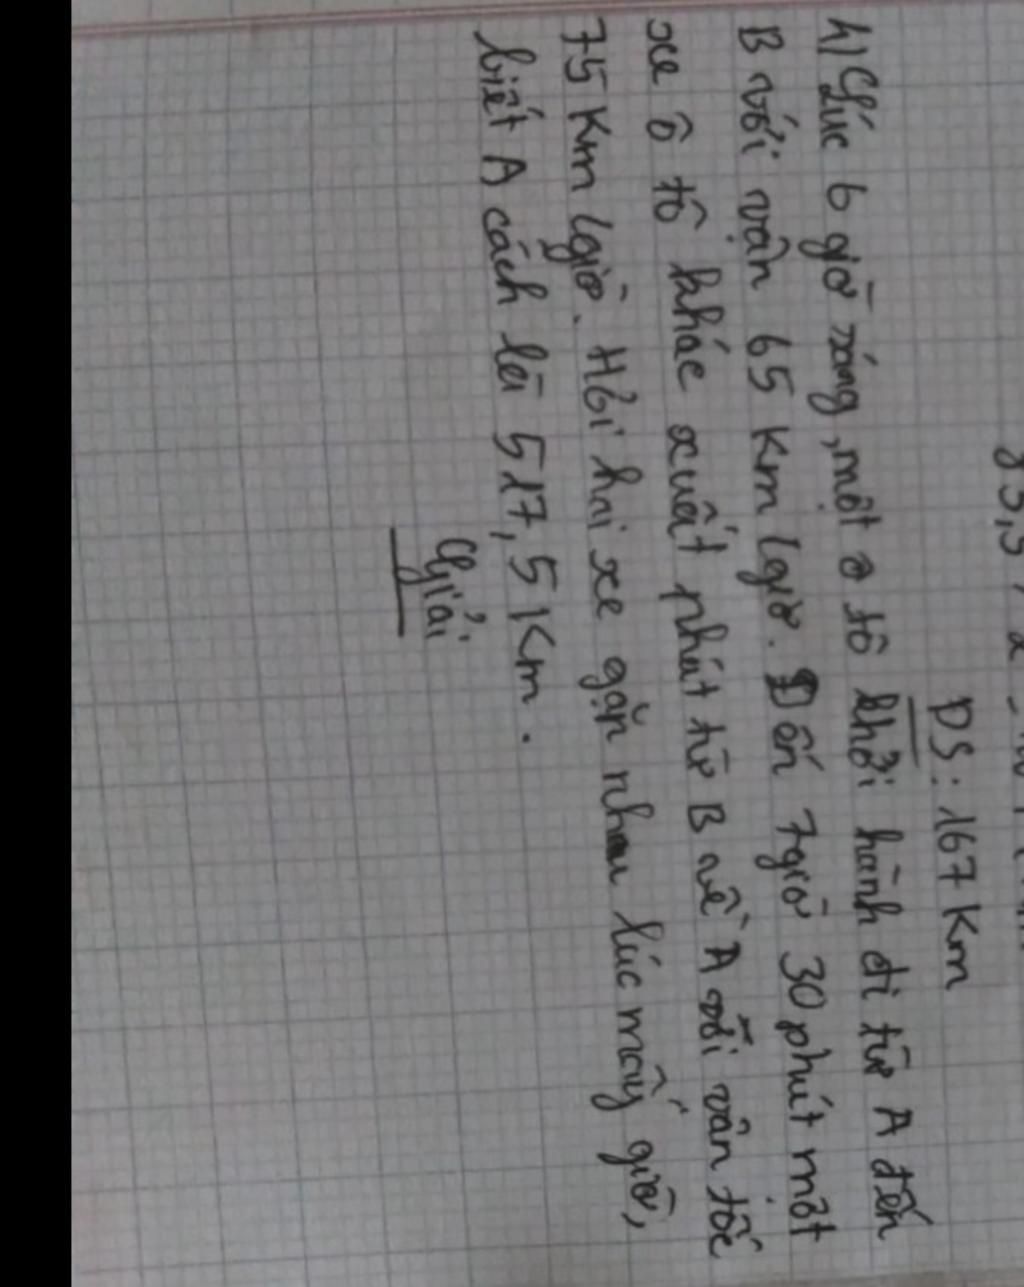 ĐS: 167 Km
4) Lúc 6 giờ sáng, một ô tô khởi hành đi từ A đến
B với vận 65 Km/giờ. Đến 7giờ 30 phút một
xe ô tô khác xuất phát từ B về A với vân tốc
75 Km/giờ. Hỏi hai xe gặp nhau lúc mấy giờ,
biết A cách là 517,5 Km.
Giải